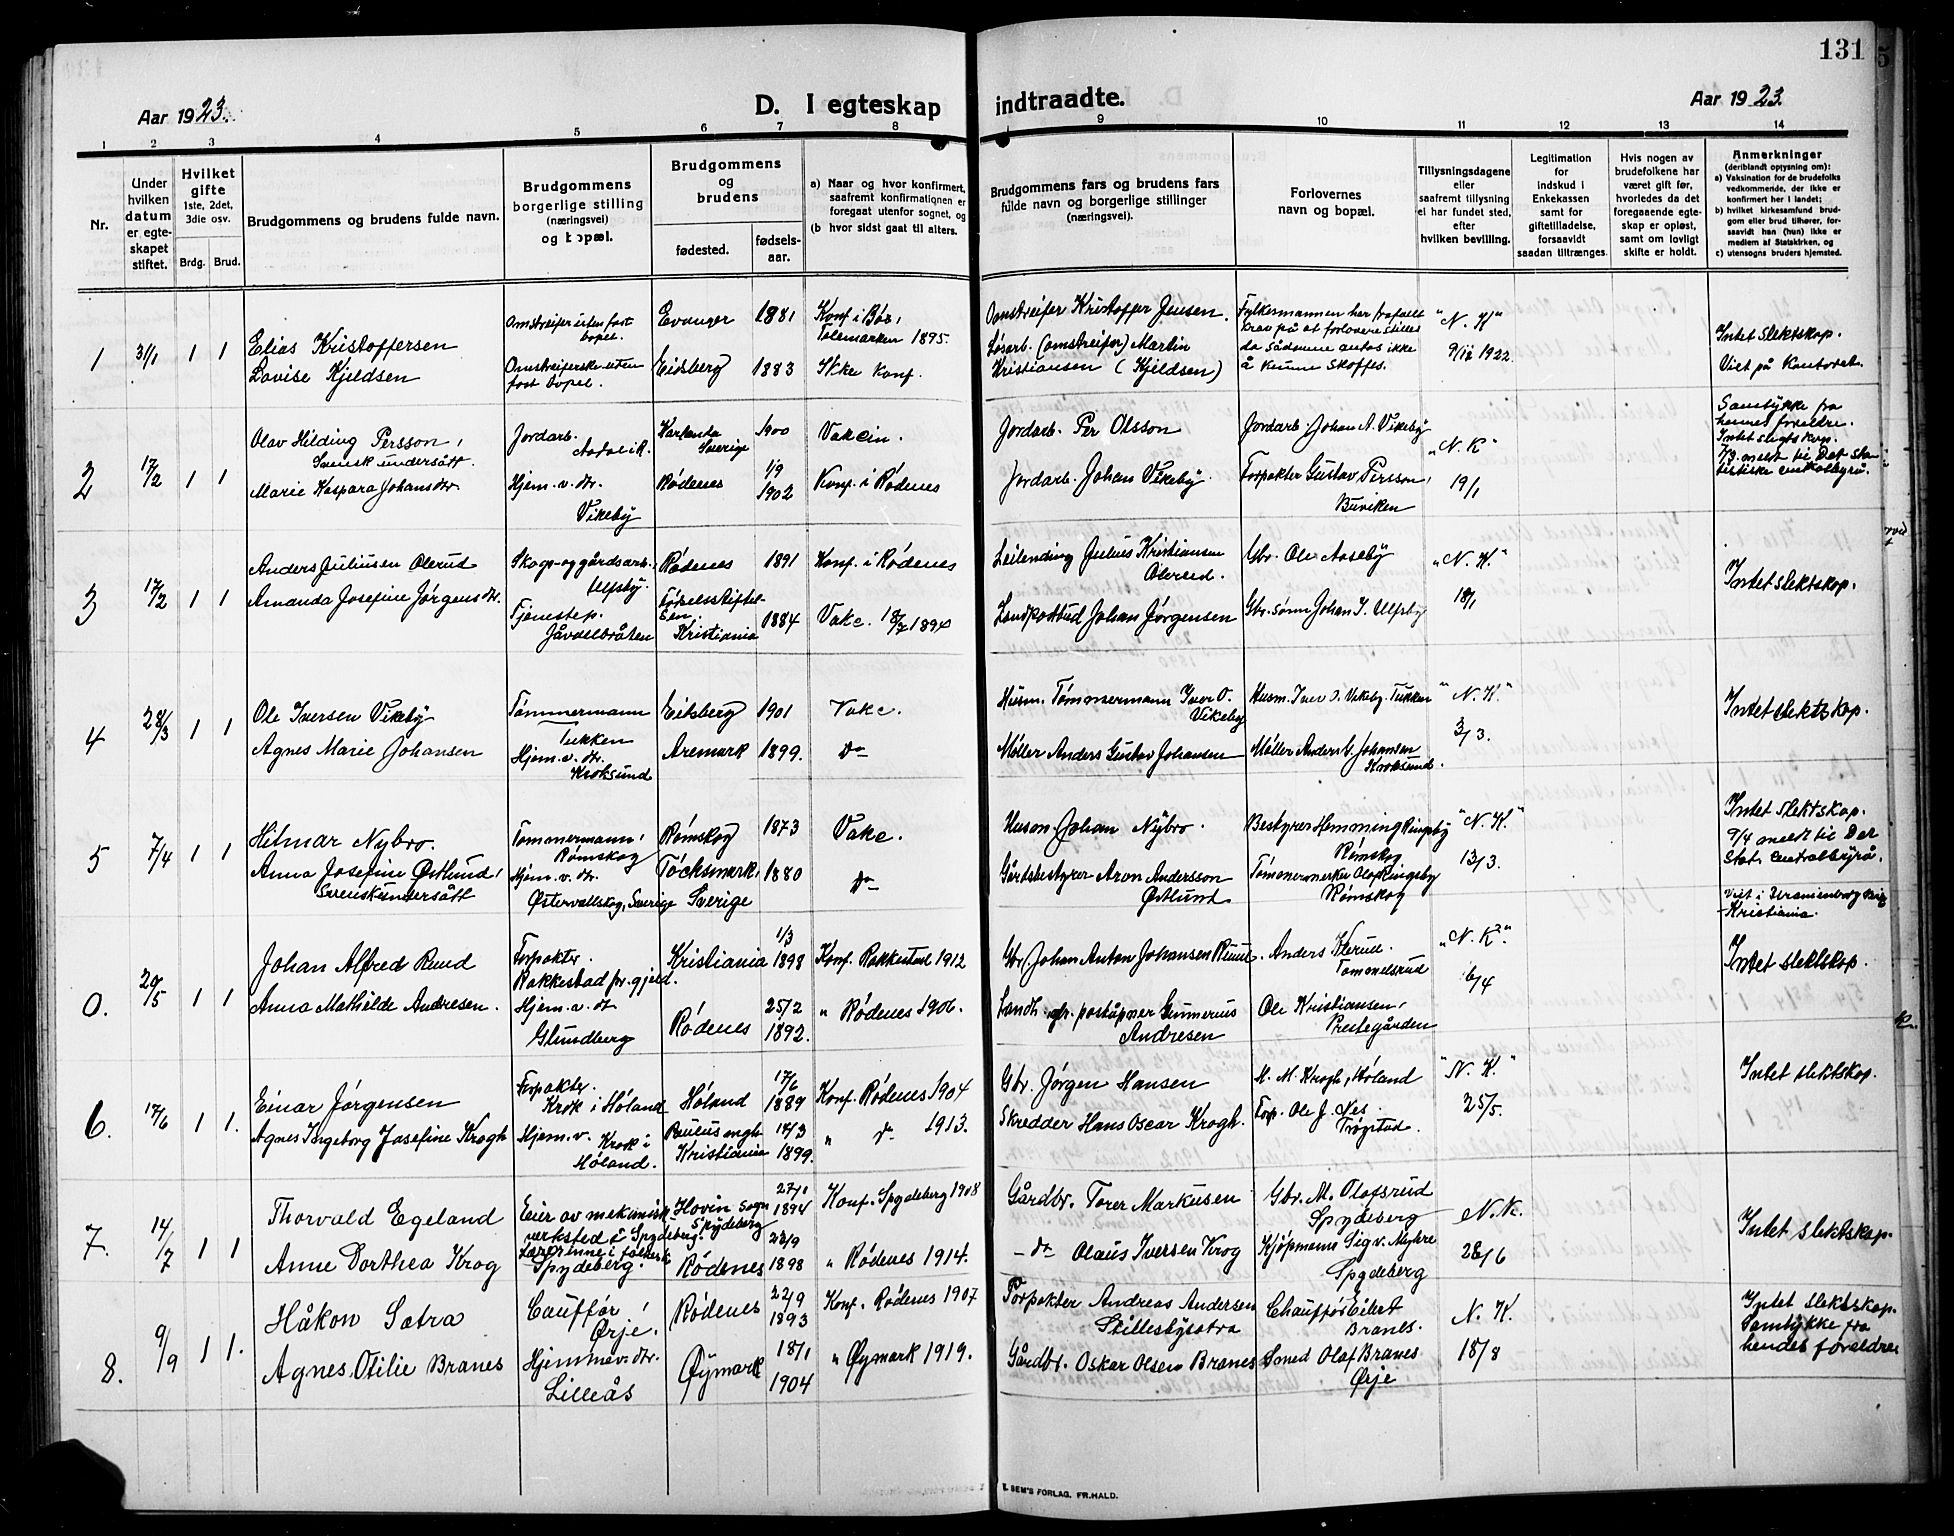 131
Aar 1923.
D. I egteskap indtraadte.
Aar 1923
1 2 3 4 5 6 7 8 9 10 11 12 13 14
Nr.
Under hvilken datum er egteskapet stiftet.
Hvilket gifte 1ste, 2det, 3die osv.
Brdg. Brud.
Brudgommens og brudens fulde navn.
Brudgommens borgerlige stilling (næringsvei) og bopæl.
Brudgommens og brudens
fødested.
fødselsaar.
a) Naar og hvor konfirmert, saafremt konfirmationen er foregaat utenfor sognet, og
(b hvor sidst gaat til alters.
Brudgommens fars og brudens fars fulde navn og borgerlige stillinger (næringsvei).
Forlovernes navn og bopæl.
Tillysningsdagene eller saafremt tillysning ei har fundet sted, efter hvilken bevilling.
Legitimation for indskud i Enkekassen samt for giftetilladelse, forsaavidt saadan tiltrænges.
Hvis nogen av brudefolkene har været gift før, hvorledes da det foregaaende egteskap er opløst, samt om lovligt skifte er holdt.
Anmerkninger (deriblandt opjysning om):
a) Vaksination for de brudefolks vedkommende, der ikke er konfirmert her i landet;
b) hvilket kirkesamfund brudgom eller brud tilhører, forsaavidt han (hun) ikke er medlem af Statskirken, og
c) utensogns bruders hjemsted.
1 31/1 1 1
Elias Kristoffersen
Lovise Kjeldsen
Omstreifer uten fast bopel.
Omstreiferske uten fast bopel.
Evanger 1881
Eidsberg 1883
Konf. i Bøe, Telemarken 1895.
Ikke konf.
Omstreifer Kristoffer Jensen.
Løsarb. (omstreifer) Martin Kristiansen (Kjeldsen)
Fylkesmannen har frafalt krav på at forlovere stilles da sådanne antas ikke å kunne skaffes.
"N. K"
9/12 1922.
Intet slektskap.
Viet på Kontoret.
2 17/2 1 1
Olav Hilding Persson,
Svensk undersått.
Marie Kaspara Johansdtr.
Jordarb.
Hjem. v. dr.
Vikeby
Karlanda Sverige 1900
Rødenes 1/9 1902
Vakcin.
Konf. i Rødenes
Jordarb. Per Olsson
Jordarb. Johan Vikeby.
Jordarb. Johan A. Vikeby
Forpakter Gustav Persson, Buviken
"N. K"
19/1
Samtykke fra hennes foreldre.
Intet slegtskap.
7/3 meldt til Det statistiske centralbyrå.
3 17/2 1 1
Anders Juliusen Olerud
Amanda Josefine Jørgensdtr.
Skogs- og gårdsarb. Ulfsby.
Tjenestep.
Rødenes 1891
Fødselsstiftelsen Kristiania 1884
Konf. i Rødenes
Vakc. 18/7 1894
Leilending Julius Kristiansen Olerud.
Landpostbud Johan Jørgensen
Gbr. Ole Aaseby
Gbr. sønn Johan J. Ulfsby
"N. K."
18/1
Intet slektskap.
4 28/3 1 1
Ole Iversen Vikeby
Agnes Marie Johansen
Tømmermann
Tukken
Hjem. v. dr.
Kroksund
Eidsberg 1901
Aremark 1899.
Vakc.
do
Husm. Tømmermann Iver O. Vikeby
Møller Anders Gustav Johansen
Husm. Iver O. Vikeby. Tukken
Møller Anders G. Johansen Kroksund.
"N. K."
3/3.
Intet slektskap.
5 7/4 1 1
Hilmar Nybro.
Anna Josefine Østlund,
Svensk undersått
Tømmermann, Rømskog
Hjem. v. dr.
Østervallskog, Sverige
Rømskog 1873
Töcksmark, Sverige 1880
Vakc.
do
Husm. Johan Nybro.
Gårdsbestyrer Aron Andersson Østlund
Bestyrer Hemming Ringsby Rømskog
Tømmermerker Olaf Ringsby Rømskog
"N. K."
13/3.
Intet slektskap.
9/4 meldt til Det Stat. centralbyrå.
0. 20/5 1 1
Johan Alfred Ruud
Anna Mathilde Andresen.
Forpakter. Rakkestad pr.gjeld.
Hjem. v. dr.
Glundberg
Kristiania 1/3 1898
Rødenes 25/2 1892.
Konf. Rakkestad 1912
" Rødenes 1906.
Gbr. Johan Anton Johansen Ruud
Landh. og poståpner Gunnerius Andresen
Anders Kjerud. Tommelsrud
Ole Kristiansen, Prestegården
"N. K."
6/4
Viet i Uranienborg Kirke Kristiania.
Intet slektskap.
6. 17/6 1 1.
Einar Jørgensen
Agnes Ingeborg Josefine Krogh
Forpakter. Krok i Høland
Hjem. v. Krok i Høland.
Høland 17/6 1889
Paulus mgh. Kristiania 18/3 1899.
Konf. Rødenes 1904
" do 1913.
Gbr. Jørgen Hansen
Skredder Hans Oscar Krogh.
M. M. Krogh, Høland
Forp. Ole J. Nes. Trøgstad.
"N. K."
25/5.
Intet slektskap.
7. 14/7 1 1
Thorvald Egeland
Anne Dorthea Krog
Eier av mekanisk verksted i Spydeberg.
Lærerinne i folkesk. Spydeberg.
Hovin sogn Spydeberg 27/1 1894
Rødenes 22/9 1898
Konf. Spydeberg 1908
" Rødenes 1914.
Gårdbr. Torer Markusen
- do Olaus Iversen Krog
Gbr. M. Olafsrud Spydeberg
Kjøpmann Sigv. Myhre Spydeberg
N. K.
28/6
Intet slektskap.
8. 9/9 1 1.
Håkon Sætra
Agnes Otilie Branes
Cauffør, Ørje.
Hjemmev. dr.
Lilleås
Rødenes 22/9 1893
Øymark 18/1 1904
Konf. Rødenes 1907
" Øymark 1919.
Forpakter Andreas Andersen Stillesbysætra
Gårdbr. Oskar Olsen Branes
Chauffør Eilert Branes.
Smed Olaf Branes Ørje
N. K.
18/8
Intet slektskap.
Samtykke fra hendes foreldre
E. SEM'S FORLAG. FR.HALD.